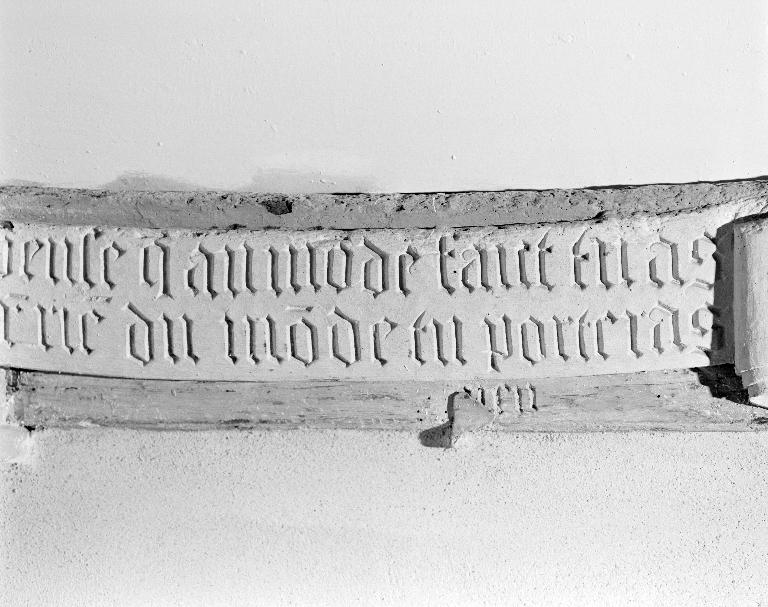 peusse q au mōde tant tu as
rie du mōde tu porteras